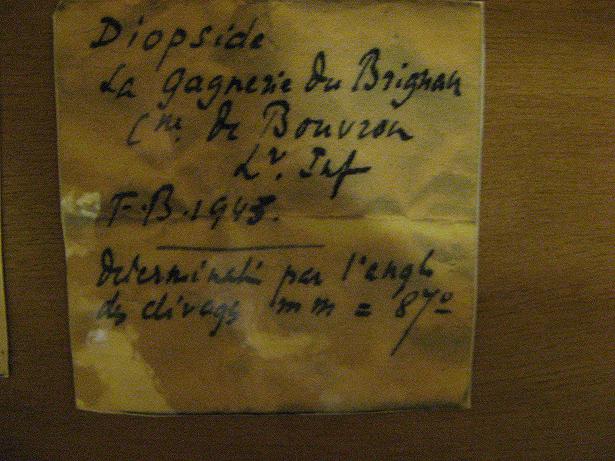 Diopside
La Gagnerie du Brignan
Cne. de Bouvron
Lr. Inf
F.B. 1943.
determinatn par l'angle
des clivages mm = 87°